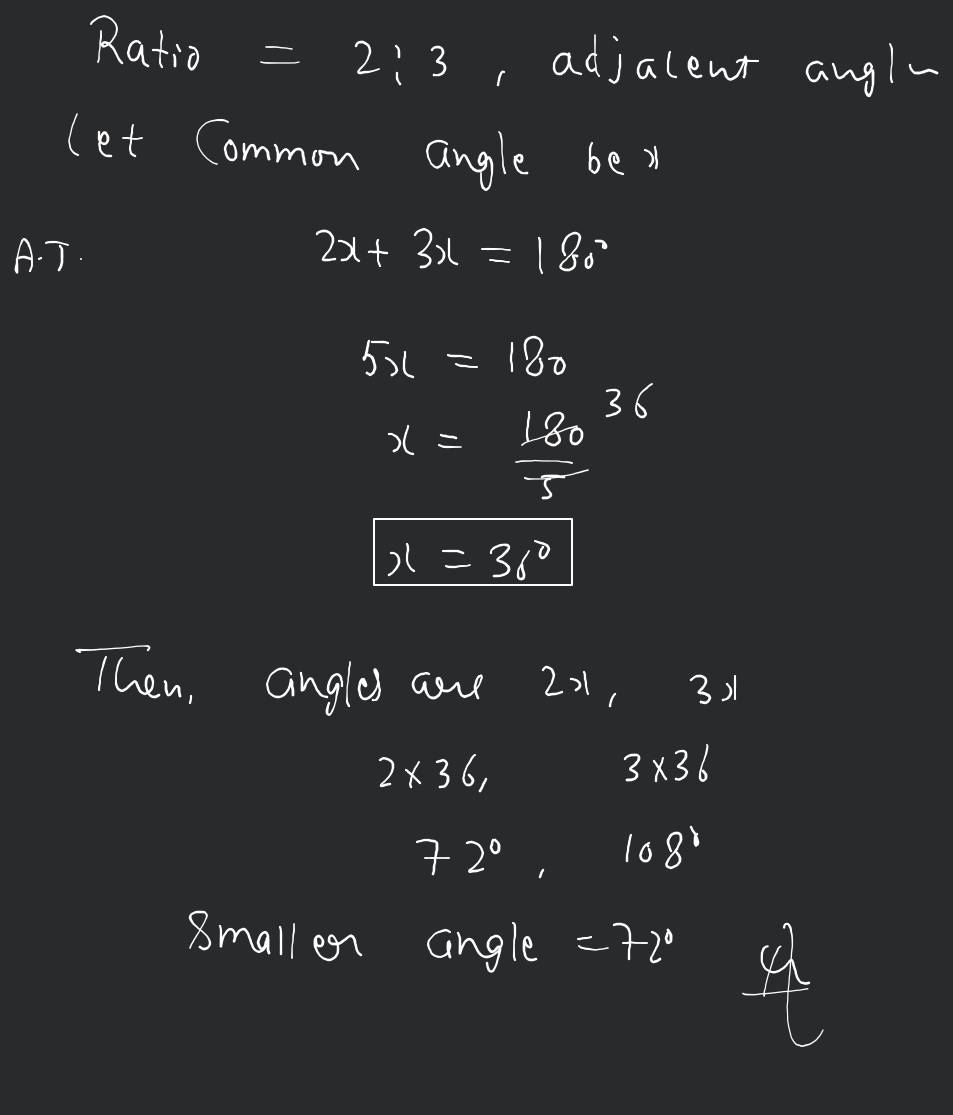 Ratio = 2:3, adjacent angle
let Common angle be x
A.T. 2x + 3x = 180°
5x = 180
36
x = 180/5
x = 36°
Then, angles are 2x, 3x
2×36, 3×36
72°, 108°
Smaller angle = 72°